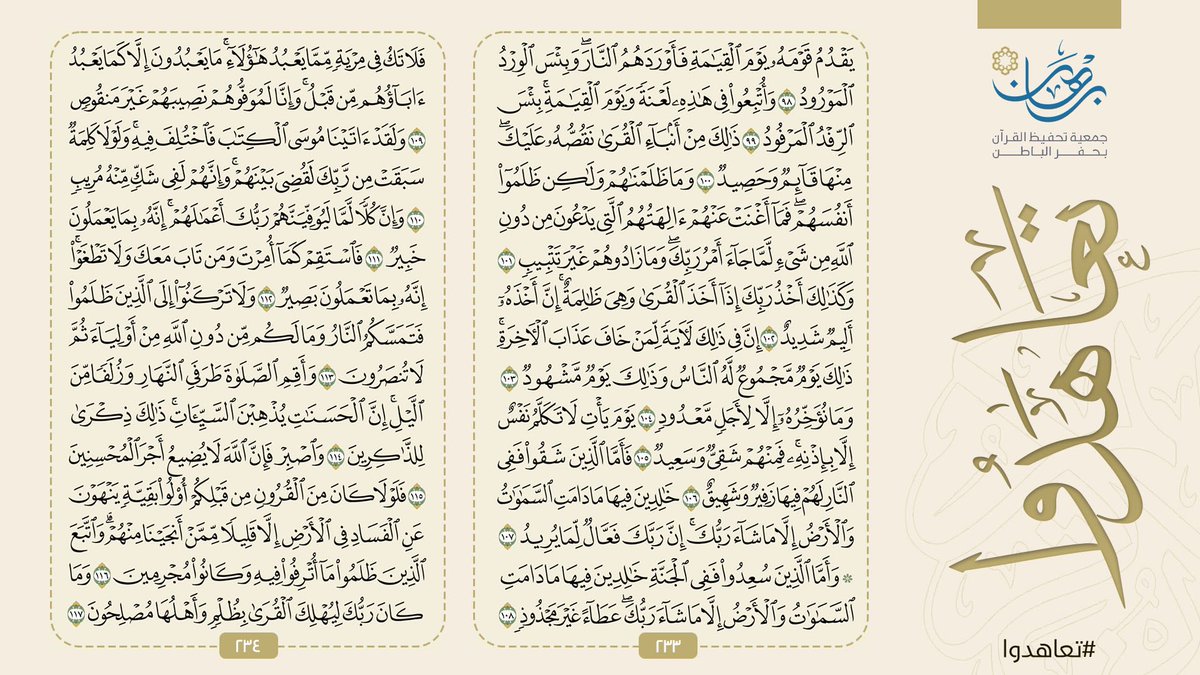 برهان
جمعية تحفيظ القرآن
بحفر الباطن
تعاهدوا
#تعاهدوا
يَقْدُمُ قَوْمَهُۥ يَوْمَ ٱلْقِيَٰمَةِ فَأَوْرَدَهُمُ ٱلنَّارَۖ وَبِئْسَ ٱلْوِرْدُ
ٱلْمَوْرُودُ ٩٨ وَأُتْبِعُوا۟ فِى هَٰذِهِۦ لَعْنَةً وَيَوْمَ ٱلْقِيَٰمَةِۚ بِئْسَ
ٱلرِّفْدُ ٱلْمَرْفُودُ ٩٩ ذَٰلِكَ مِنْ أَنۢبَآءِ ٱلْقُرَىٰ نَقُصُّهُۥ عَلَيْكَۖ
مِنْهَا قَآئِمٌ وَحَصِيدٌ ١٠٠ وَمَا ظَلَمْنَٰهُمْ وَلَٰكِن ظَلَمُوٓا۟
أَنفُسَهُمْۖ فَمَآ أَغْنَتْ عَنْهُمْ ءَالِهَتُهُمُ ٱلَّتِى يَدْعُونَ مِن دُونِ
ٱللَّهِ مِن شَىْءٍ لَّمَّا جَآءَ أَمْرُ رَبِّكَۖ وَمَا زَادُوهُمْ غَيْرَ تَتْبِيبٍ ١٠١
وَكَذَٰلِكَ أَخْذُ رَبِّكَ إِذَآ أَخَذَ ٱلْقُرَىٰ وَهِىَ ظَٰلِمَةٌۚ إِنَّ أَخْذَهُۥٓ
أَلِيمٌ شَدِيدٌ ١٠٢ إِنَّ فِى ذَٰلِكَ لَءَايَةً لِّمَنْ خَافَ عَذَابَ ٱلْءَاخِرَةِۚ
ذَٰلِكَ يَوْمٌ مَّجْمُوعٌ لَّهُ ٱلنَّاسُ وَذَٰلِكَ يَوْمٌ مَّشْهُودٌ ١٠٣
وَمَا نُؤَخِّرُهُۥٓ إِلَّا لِأَجَلٍ مَّعْدُودٍ ١٠٤ يَوْمَ يَأْتِ لَا تَكَلَّمُ نَفْسٌ
إِلَّا بِإِذْنِهِۦۚ فَمِنْهُمْ شَقِىٌّ وَسَعِيدٌ ١٠٥ فَأَمَّا ٱلَّذِينَ شَقُوا۟ فَفِى
ٱلنَّارِ لَهُمْ فِيهَا زَفِيرٌ وَشَهِيقٌ ١٠٦ خَٰلِدِينَ فِيهَا مَا دَامَتِ ٱلسَّمَٰوَٰتُ
وَٱلْأَرْضُ إِلَّا مَا شَآءَ رَبُّكَۚ إِنَّ رَبَّكَ فَعَّالٌ لِّمَا يُرِيدُ ١٠٧
۞ وَأَمَّا ٱلَّذِينَ سُعِدُوا۟ فَفِى ٱلْجَنَّةِ خَٰلِدِينَ فِيهَا مَا دَامَتِ
ٱلسَّمَٰوَٰتُ وَٱلْأَرْضُ إِلَّا مَا شَآءَ رَبُّكَۖ عَطَآءً غَيْرَ مَجْذُوذٍ ١٠٨
٢٣٣
فَلَا تَكُ فِى مِرْيَةٍ مِّمَّا يَعْبُدُ هَٰٓؤُلَآءِۚ مَا يَعْبُدُونَ إِلَّا كَمَا يَعْبُدُ
ءَابَآؤُهُم مِّن قَبْلُۚ وَإِنَّا لَمُوَفُّوهُمْ نَصِيبَهُمْ غَيْرَ مَنقُوصٍ
١٠٩ وَلَقَدْ ءَاتَيْنَا مُوسَى ٱلْكِتَٰبَ فَٱخْتُلِفَ فِيهِۚ وَلَوْلَا كَلِمَةٌ
سَبَقَتْ مِن رَّبِّكَ لَقُضِىَ بَيْنَهُمْۚ وَإِنَّهُمْ لَفِى شَكٍّ مِّنْهُ مُرِيبٍ
١١٠ وَإِنَّ كُلًّا لَّمَّا لَيُوَفِّيَنَّهُمْ رَبُّكَ أَعْمَٰلَهُمْۚ إِنَّهُۥ بِمَا يَعْمَلُونَ
خَبِيرٌ ١١١ فَٱسْتَقِمْ كَمَآ أُمِرْتَ وَمَن تَابَ مَعَكَ وَلَا تَطْغَوْا۟ۚ
إِنَّهُۥ بِمَا تَعْمَلُونَ بَصِيرٌ ١١٢ وَلَا تَرْكَنُوٓا۟ إِلَى ٱلَّذِينَ ظَلَمُوا۟
فَتَمَسَّكُمُ ٱلنَّارُ وَمَا لَكُم مِّن دُونِ ٱللَّهِ مِنْ أَوْلِيَآءَ ثُمَّ
لَا تُنصَرُونَ ١١٣ وَأَقِمِ ٱلصَّلَوٰةَ طَرَفَىِ ٱلنَّهَارِ وَزُلَفًا مِّنَ
ٱلَّيْلِۚ إِنَّ ٱلْحَسَنَٰتِ يُذْهِبْنَ ٱلسَّيِّـَٔاتِۚ ذَٰلِكَ ذِكْرَىٰ
لِلذَّٰكِرِينَ ١١٤ وَٱصْبِرْ فَإِنَّ ٱللَّهَ لَا يُضِيعُ أَجْرَ ٱلْمُحْسِنِينَ
١١٥ فَلَوْلَا كَانَ مِنَ ٱلْقُرُونِ مِن قَبْلِكُمْ أُو۟لُوا۟ بَقِيَّةٍ يَنْهَوْنَ
عَنِ ٱلْفَسَادِ فِى ٱلْأَرْضِ إِلَّا قَلِيلًا مِّمَّنْ أَنجَيْنَا مِنْهُمْۗ وَٱتَّبَعَ
ٱلَّذِينَ ظَلَمُوا۟ مَآ أُتْرِفُوا۟ فِيهِ وَكَانُوا۟ مُجْرِمِينَ ١١٦ وَمَا
كَانَ رَبُّكَ لِيُهْلِكَ ٱلْقُرَىٰ بِظُلْمٍ وَأَهْلُهَا مُصْلِحُونَ ١١٧
٢٣٤